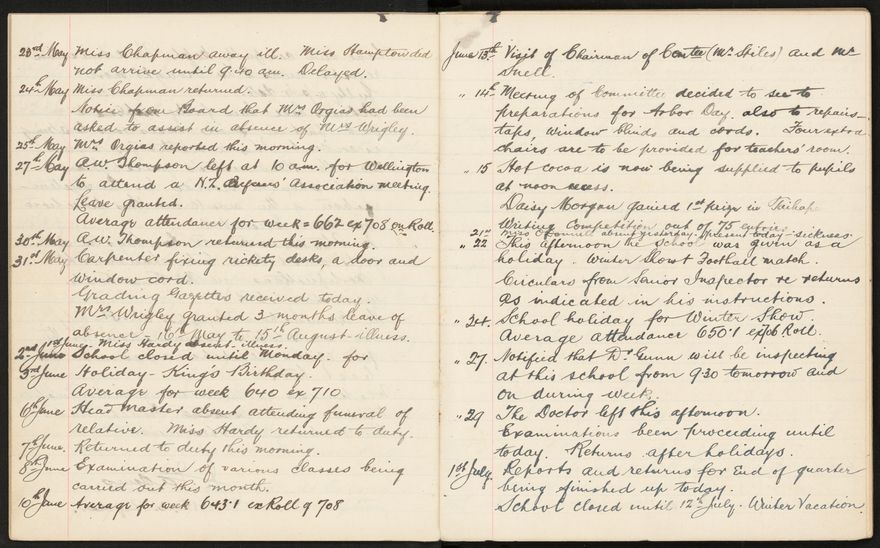 23rd May Miss Chapman away ill. Miss Hampton did
not arrive until 9.40 a.m. Delayed.
24th May Miss Chapman returned.
Notice from Board that Mrs Orgias had been
asked to assist in absence of Mrs Wrigley.
25th May Mrs Orgias reported this morning.
27th May A.W. Thompson left at 10 a.m. for Wellington
to attend a N.Z. Association meeting.
Leave granted.
Average attendance for week = 662 ex 708 on Roll
30th May A.W. Thompson returned this morning.
31st May Carpenter fixing rickety desks, a door and
window cord.
Grading Gazettes received today.
Mrs Wrigley granted 3 months leave of
absence 16th May to 15th August - illness.
1st June. Miss Hardy absent. illness.
2nd June School closed until Monday. for
3rd June Holiday - King's Birthday.
Average for week 640 ex 710
6th June Head Master absent attending funeral of
relative. Miss Hardy returned to duty.
7th June. Returned to duty this morning.
8th June Examination of various classes being
carried out this month.
10th June Average for week 643.1 ex Roll of 708
June 13th Visit of Chairman of Com'tee (Mr Stiles) and Mr
Snell.
" 14th Meeting of Committee decided to see to
preparations for Arbor Day. also to repairs -
taps, window blinds and cords. Four extra
chairs are to be provided for teachers' room.
" 15 Hot cocoa is now being supplied to pupils
at noon recess.
Daisy Morgan gained 1st prize in
Writing Competition out of 75 entries.
21st Miss absent yesterday. Present today - sickness
" 22 This afternoon the school was given as a
holiday. Winter Show & Football match.
Circulars from Senior Inspector re returns
as indicated in his instructions.
" 24. School holiday for Winter Show.
Average attendance 650.1 ex 706 Roll.
" 27. Notified that Dr Gunn will be inspecting
at this school from 9.30 tomorrow and
on during week.
" 29 The Doctor left this afternoon.
Examinations been proceeding until
today. Returns after holidays.
1st July. Reports and returns for End of quarter
being finished up today.
School closed until 12th July. Winter Vacation